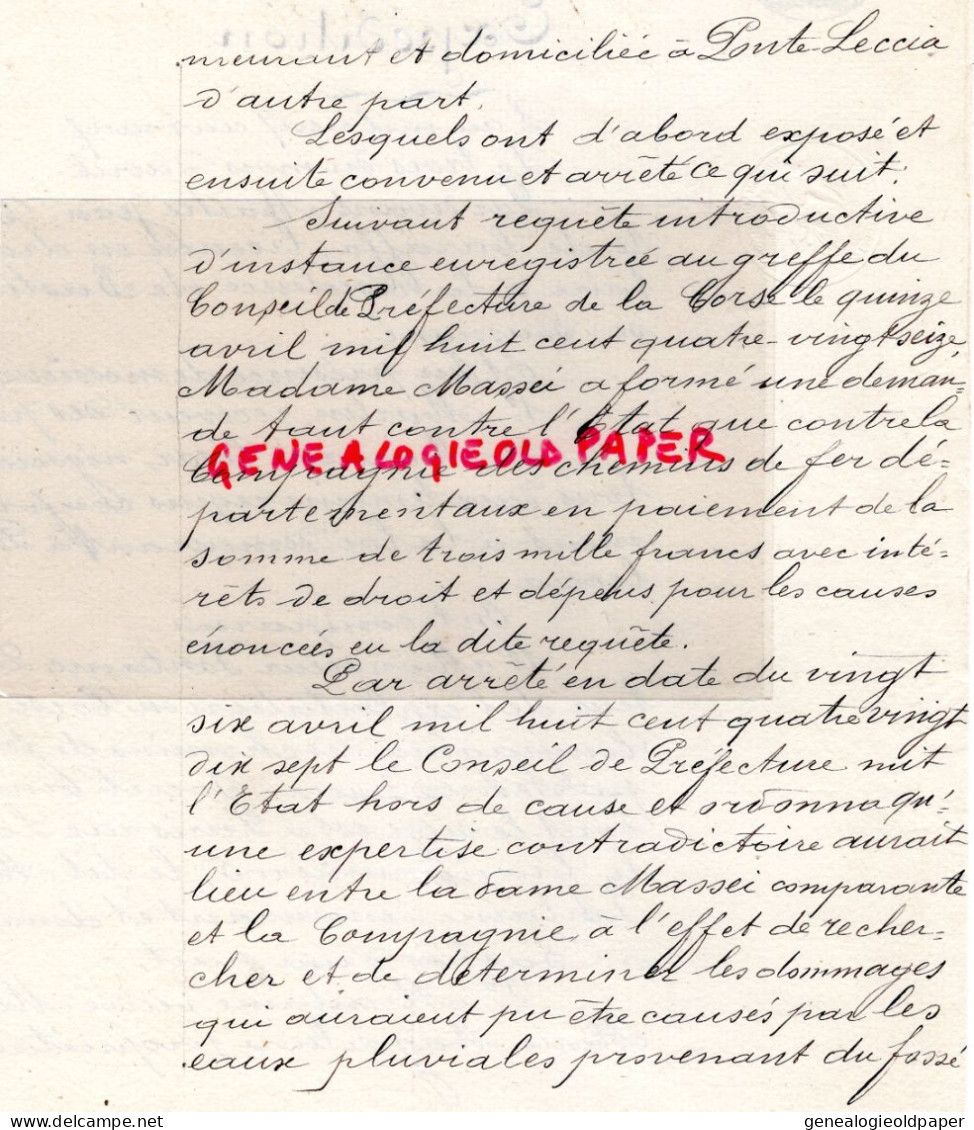 meurant et domiciliée à Ponte-Leccia
d'autre part.
Lesquels ont d'abord exposé et
ensuite convenu et arrêté ce qui suit:
Suivant requête introductive
d'instance enregistrée au greffe du
Conseil de Préfecture de la Corse le quinze
avril mil huit cent quatre-vingt seize,
Madame Massei a formé une deman-
de tant contre l'Etat que contre la
GENEALOGIEOLDPAPER
Compagnie des chemins de fer dé=
partementaux en paiement de la
somme de trois mille francs avec inté-
rêts de droit et dépens pour les causes
énoncées en la dite requête.
Par arrêté en date du vingt
six avril mil huit cent quatre vingt
dix sept le Conseil de Préfecture mit
l'Etat hors de cause et ordonna qu'-
une expertise contradictoire aurait
lieu entre la dame Massei comparante
et la Compagnie, à l'effet de recher-
cher et de determiner les dommages
qui auraient pu être causés par les
eaux pluviales provenant du fossé
genealogieoldpaper